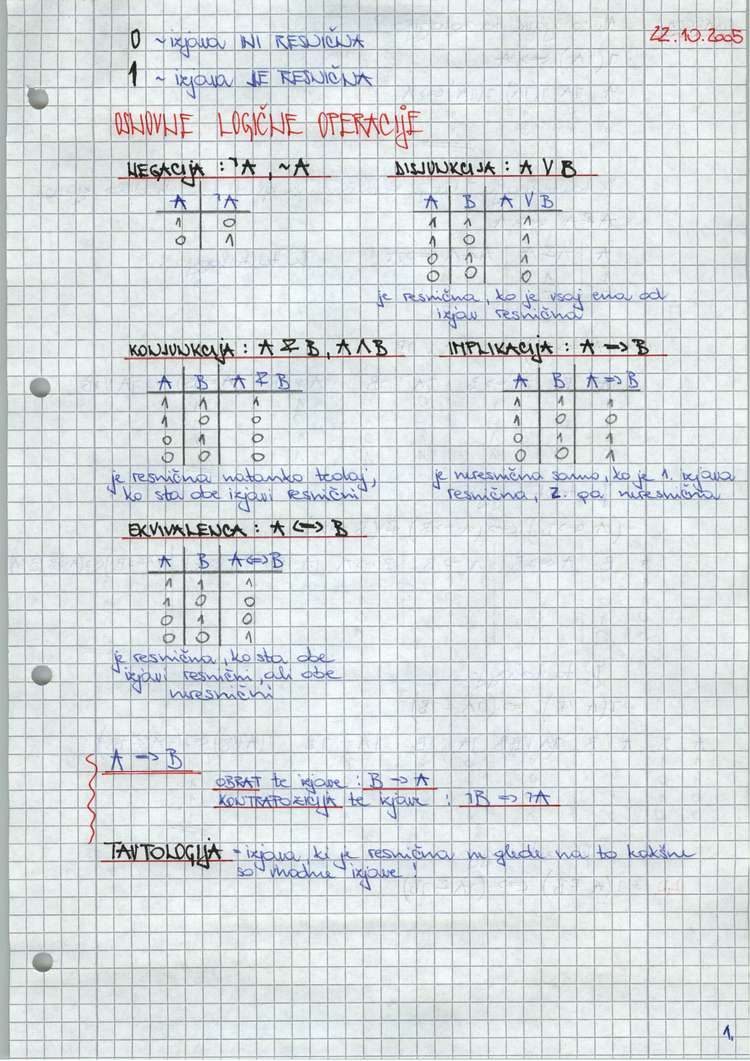 22.10.2005
0 ~ izjava NI RESNIČNA
1 ~ izjava JE RESNIČNA
OSNOVNE LOGIČNE OPERACIJE
NEGACIJA : ¬A , ~A
A ¬A
1 0
0 1
DISJUNKCIJA : A V B
A B A V B
1 1 1
1 0 1
0 1 1
0 0 0
je resnična, ko je vsaj ena od
izjav resnična
KONJUNKCIJA : A & B, A Λ B
A B A & B
1 1 1
1 0 0
0 1 0
0 0 0
je resnična natanko tedaj,
ko sta obe izjavi resnični
IMPLIKACIJA : A => B
A B A => B
1 1 1
1 0 0
0 1 1
0 0 1
je neresnična samo, ko je 1. izjava
resnična, 2. pa neresnična
EKVIVALENCA : A <=> B
A B A <=> B
1 1 1
1 0 0
0 1 0
0 0 1
je resnična, ko sta obe
izjavi resnični, ali obe
neresnični
A => B
OBRAT te izjave : B => A
KONTRAPOZICIJA te izjave : ¬B => ¬A
TAVTOLOGIJA - izjava, ki je resnična ne glede na to kakšne
so vhodne izjave!
1.